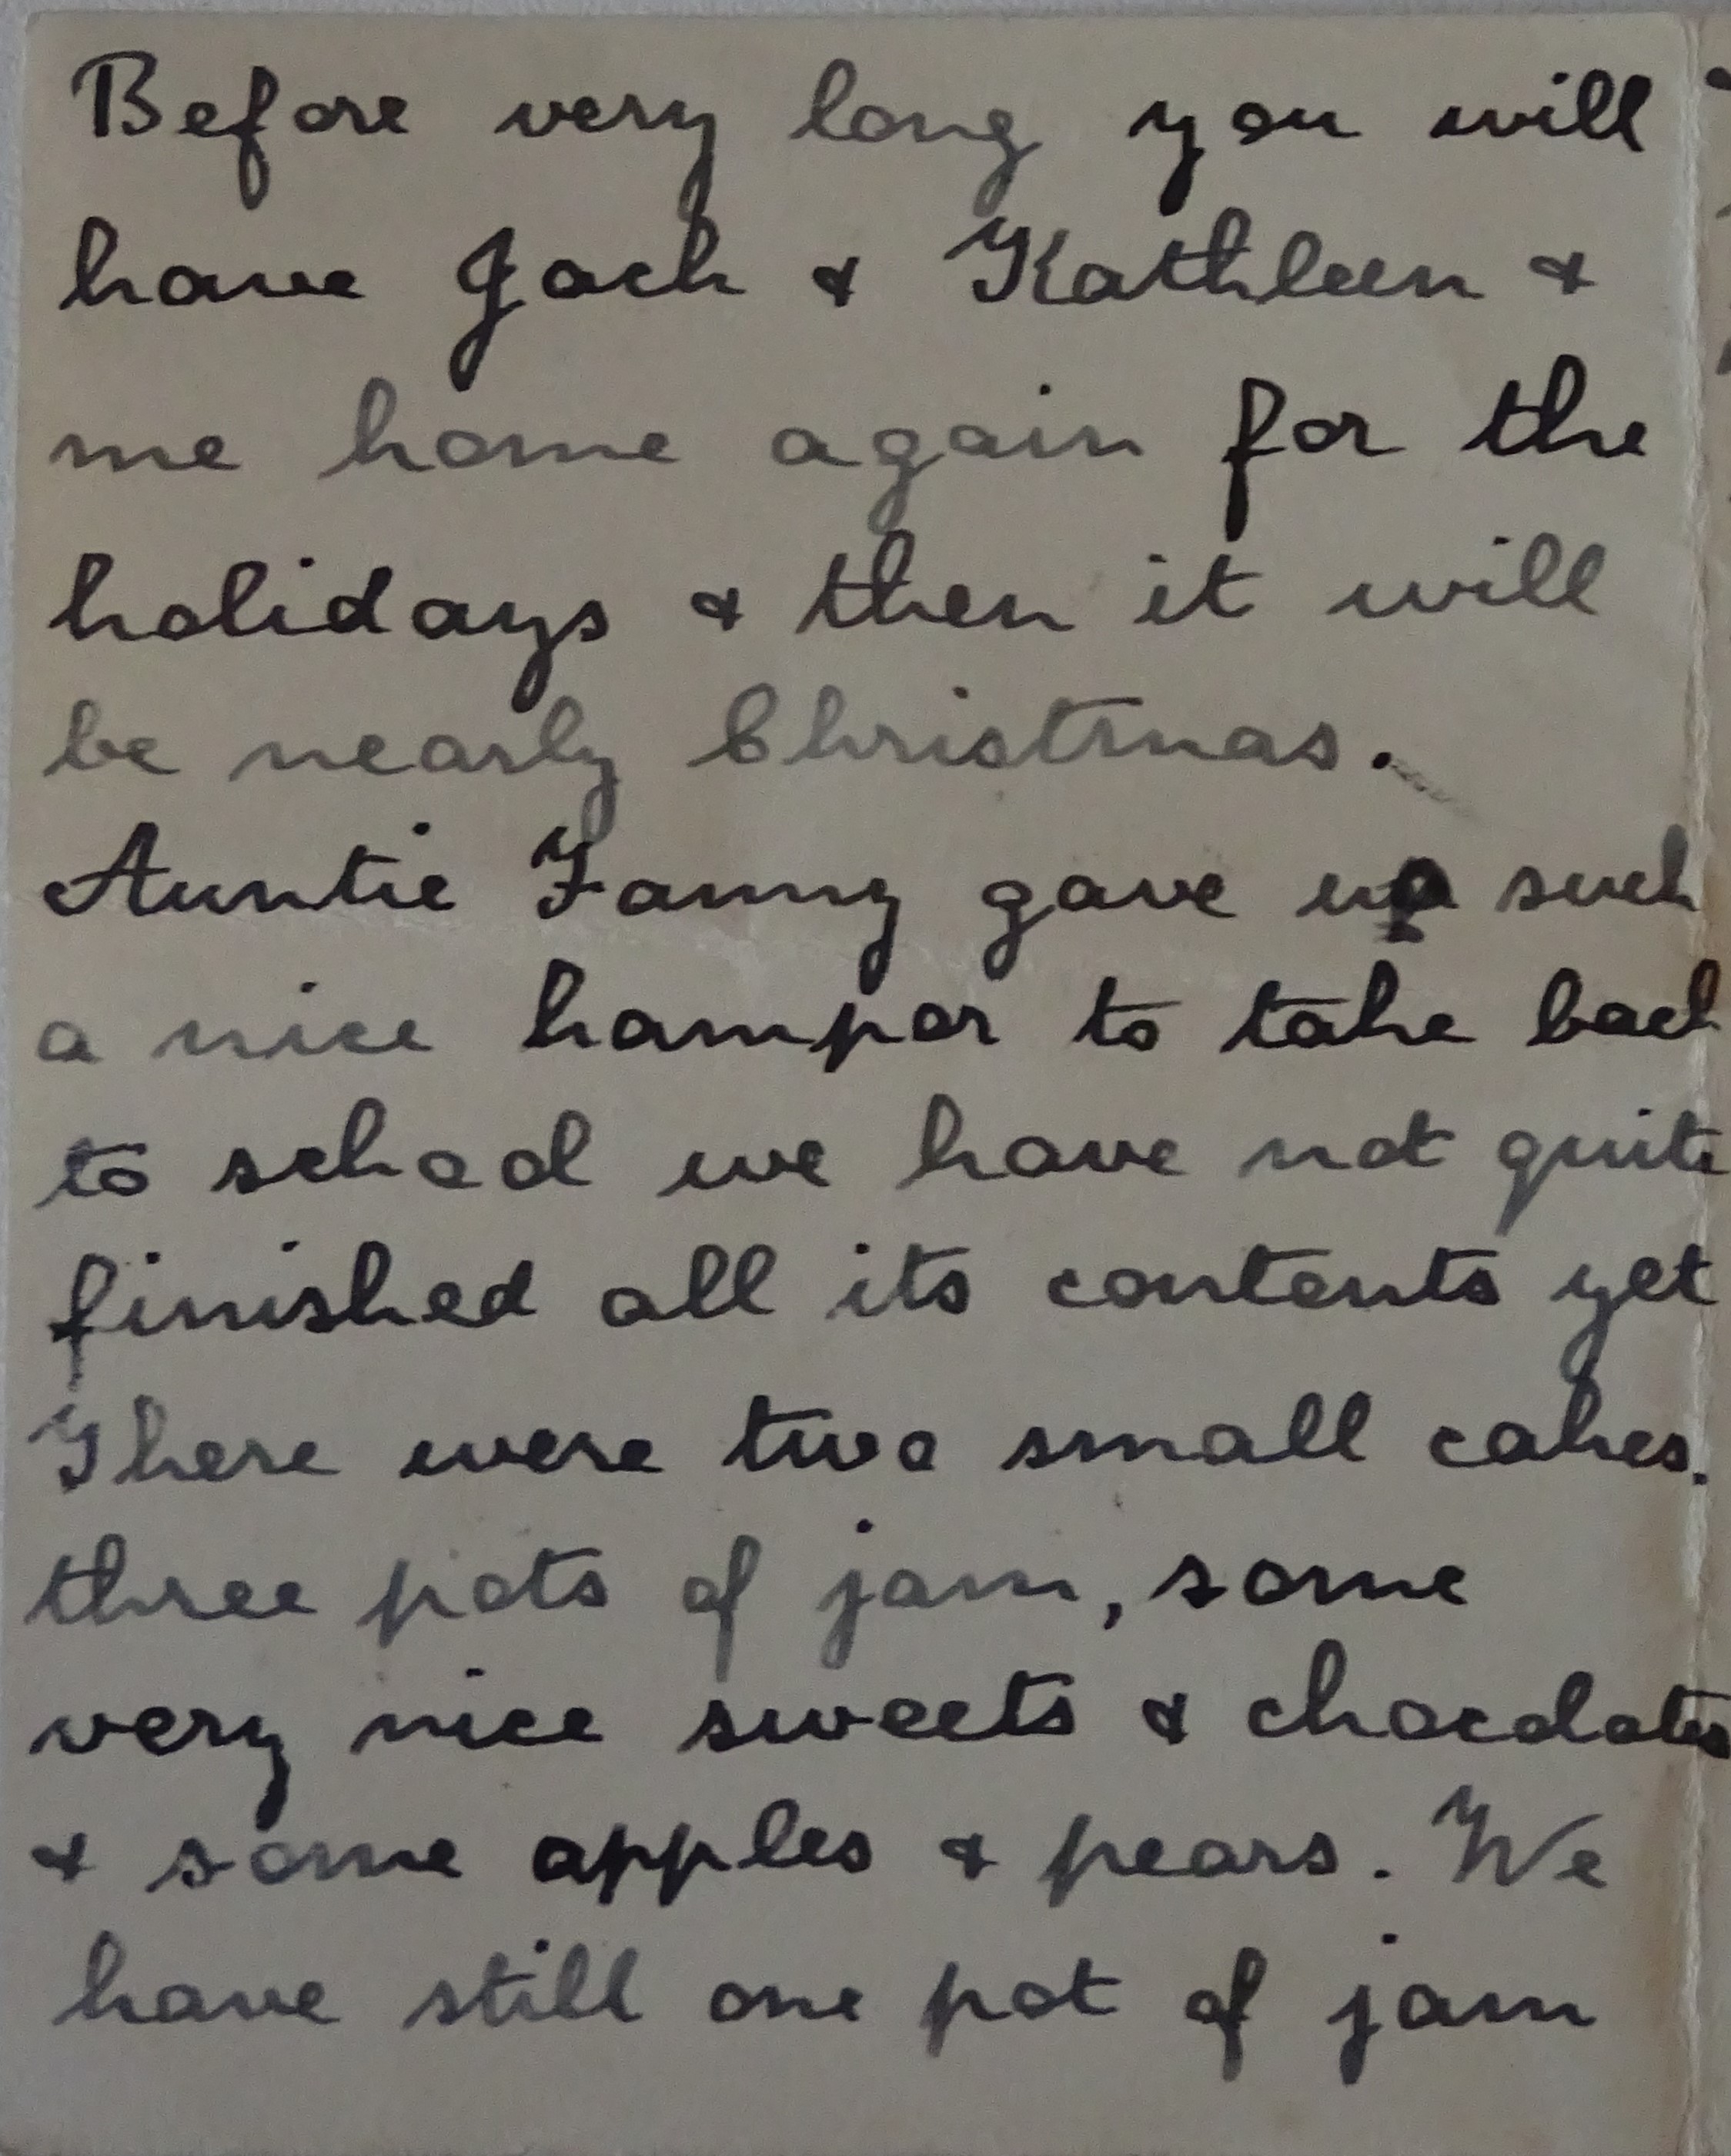 Before very long you will
have Jack & Kathleen &
me home again for the
holidays & then it will
be nearly Christmas.
Auntie Fanny gave us such
a nice hamper to take back
to school we have not quite
finished all its contents yet
There were two small cakes.
three pots of jam, some
very nice sweets & chocolates
& some apples & pears. We
have still one pot of jam